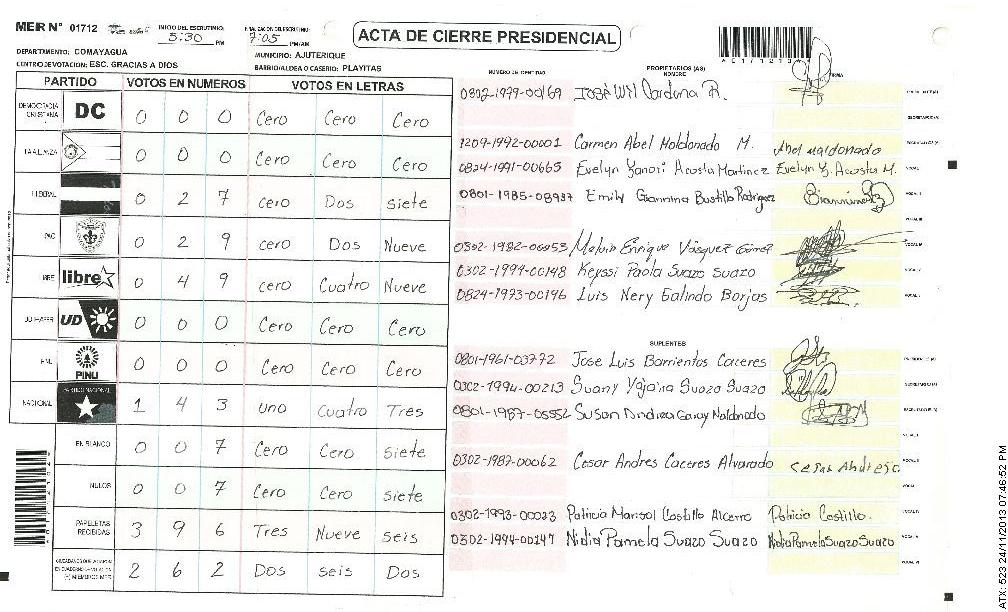 MER N° 01712 INICIO DEL ESCRUTINIO: 5:30 PM FINALIZACION DEL ESCRUTINIO: 7:05 PM/AM
ACTA DE CIERRE PRESIDENCIAL
DEPARTAMENTO: COMAYAGUA MUNICIPIO: AJUTERIQUE
CENTRO DE VOTACION: ESC. GRACIAS A DIOS BARRIO/ALDEA O CASERIO: PLAYITAS
PARTIDO VOTOS EN NUMEROS VOTOS EN LETRAS
DEMOCRACIA CRISTIANA DC 0 0 0 Cero Cero Cero
0 0 0 Cero Cero Cero
LIBERAL 0 2 7 cero Dos siete
PAC 0 2 9 cero Dos Nueve
LIBRE libre 0 4 9 cero Cuatro Nueve
UD 0 0 0 Cero Cero Cero
PINU 0 0 0 Cero Cero Cero
NACIONAL PARTIDO NACIONAL 1 4 3 uno Cuatro Tres
EN BLANCO 0 0 7 Cero Cero siete
NULOS 0 0 7 Cero Cero siete
PAPELETAS RECIBIDAS 3 9 6 Tres Nueve seis
2 6 2 Dos seis Dos
NUMERO DE IDENTIDAD PROPIETARIOS (AS) NOMBRE FIRMA
0302-1979-00169 José Wil Cardona R.
1209-1992-00001 Carmen Abel Maldonado M. Abel maldonado
0824-1991-00665 Evelyn Yanori Acosta Martinez Evelyn Y. Acosta M.
0801-1985-08937 Emily Giannina Bustillo Rodriguez
0302-1982-00053 Melvin Enrique Vásquez Gomez
0302-1994-00148 Keyssi Paola Suazo Suazo
0824-1973-00196 Luis Nery Galindo Borjas
SUPLENTES
0801-1961-03772 Jose Luis Barrientos Caceres
0302-1994-00213 Suany Yojana Suazo Suazo
0801-1987-05552 Susan Andrea Garay Maldonado
0302-1987-00062 Cesar Andres Caceres Alvarado
0302-1993-00023 Patricia Marisol Castillo Alcerro Patricia Castillo.
0302-1994-00147 Nidia Pamela Suazo Suazo Nidia Pamela Suazo Suazo
ATX: 523 24/11/2013 07:46:52 PM